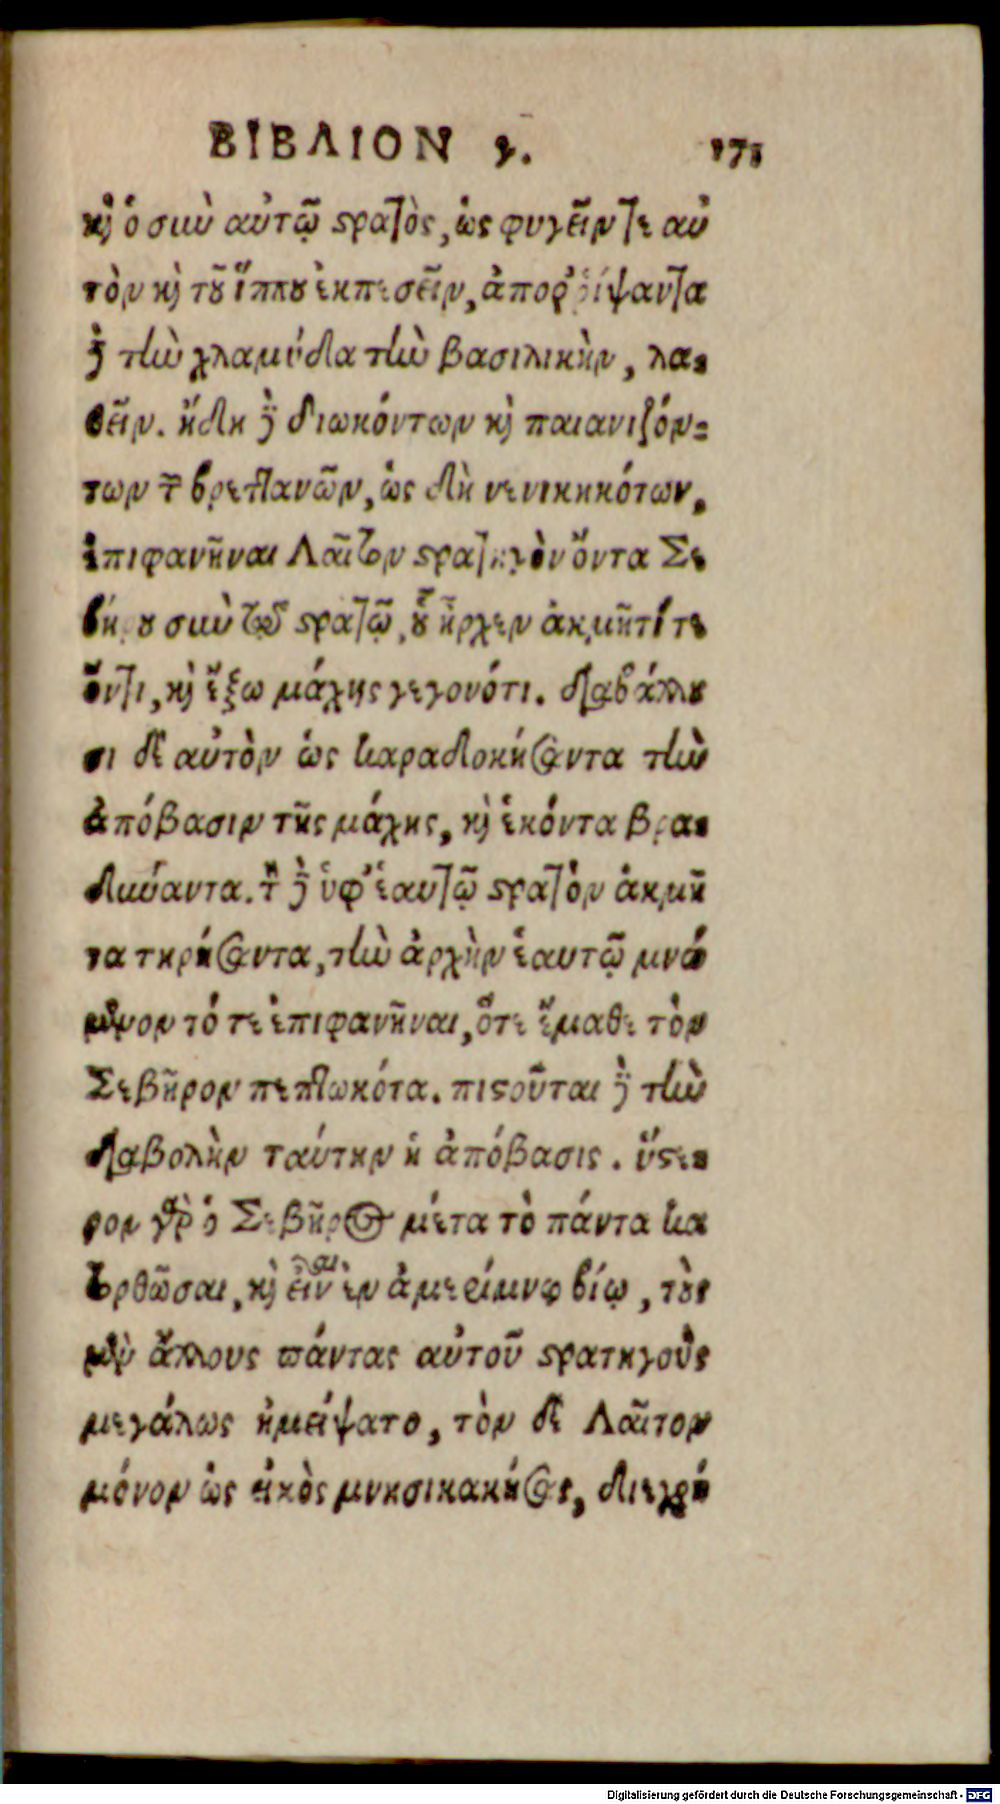 ΒΙΒΛΙΟΝ γ. 171
καὶ ὁ σὺν αὐτῷ στρατὸς, ὡς φυγεῖν τε αὐ
τὸν καὶ τοῦ ἵππου ἐκπεσεῖν, ἀποῤῥίψαντα
δὲ τὴν χλαμύδα τὴν βασιλικὴν, λα-
θεῖν. ἤδη δὲ διωκόντων καὶ παιανιζόν-
των τῶν βρεττανῶν, ὡς δὴ νενικηκότων,
ἐπιφανῆναι Λαῖτον στρατηγὸν ὄντα Σε
βήρου σὺν τῷ στρατῷ, οὗ ἦρχεν ἀκμῆτί τε
ὄντι, καὶ ἔξω μάχης γεγονότι. διαβάλλου
σι δὲ αὐτὸν ὡς καραδοκήσαντα τὴν
ἀπόβασιν τῆς μάχης, καὶ ἑκόντα βρα-
δύναντα. τὸν δὲ ὑφ' ἑαυτῷ στρατὸν ἀκμῆ
τα τηρήσαντα, τὴν ἀρχὴν ἑαυτῷ μνώ
μενον τό τε ἐπιφανῆναι, ὅτε ἔμαθε τὸν
Σεβῆρον πεπτωκότα. πιστοῦται δὲ τὴν
διαβολὴν ταύτην ἡ ἀπόβασις. ὕστε-
ρον γὰρ ὁ Σεβῆρος μετὰ τὸ πάντα κα
τορθῶσαι, καὶ εἶναι ἐν ἀμερίμνῳ βίῳ, τοὺς
μὲν ἄλλους πάντας αὐτοῦ στρατηγοὺς
μεγάλως ἠμείψατο, τὸν δὲ Λαῖτον
μόνον ὡς εἰκὸς μνησικακήσας, διεχρή
Digitalisierung gefördert durch die Deutsche Forschungsgemeinschaft - DFG